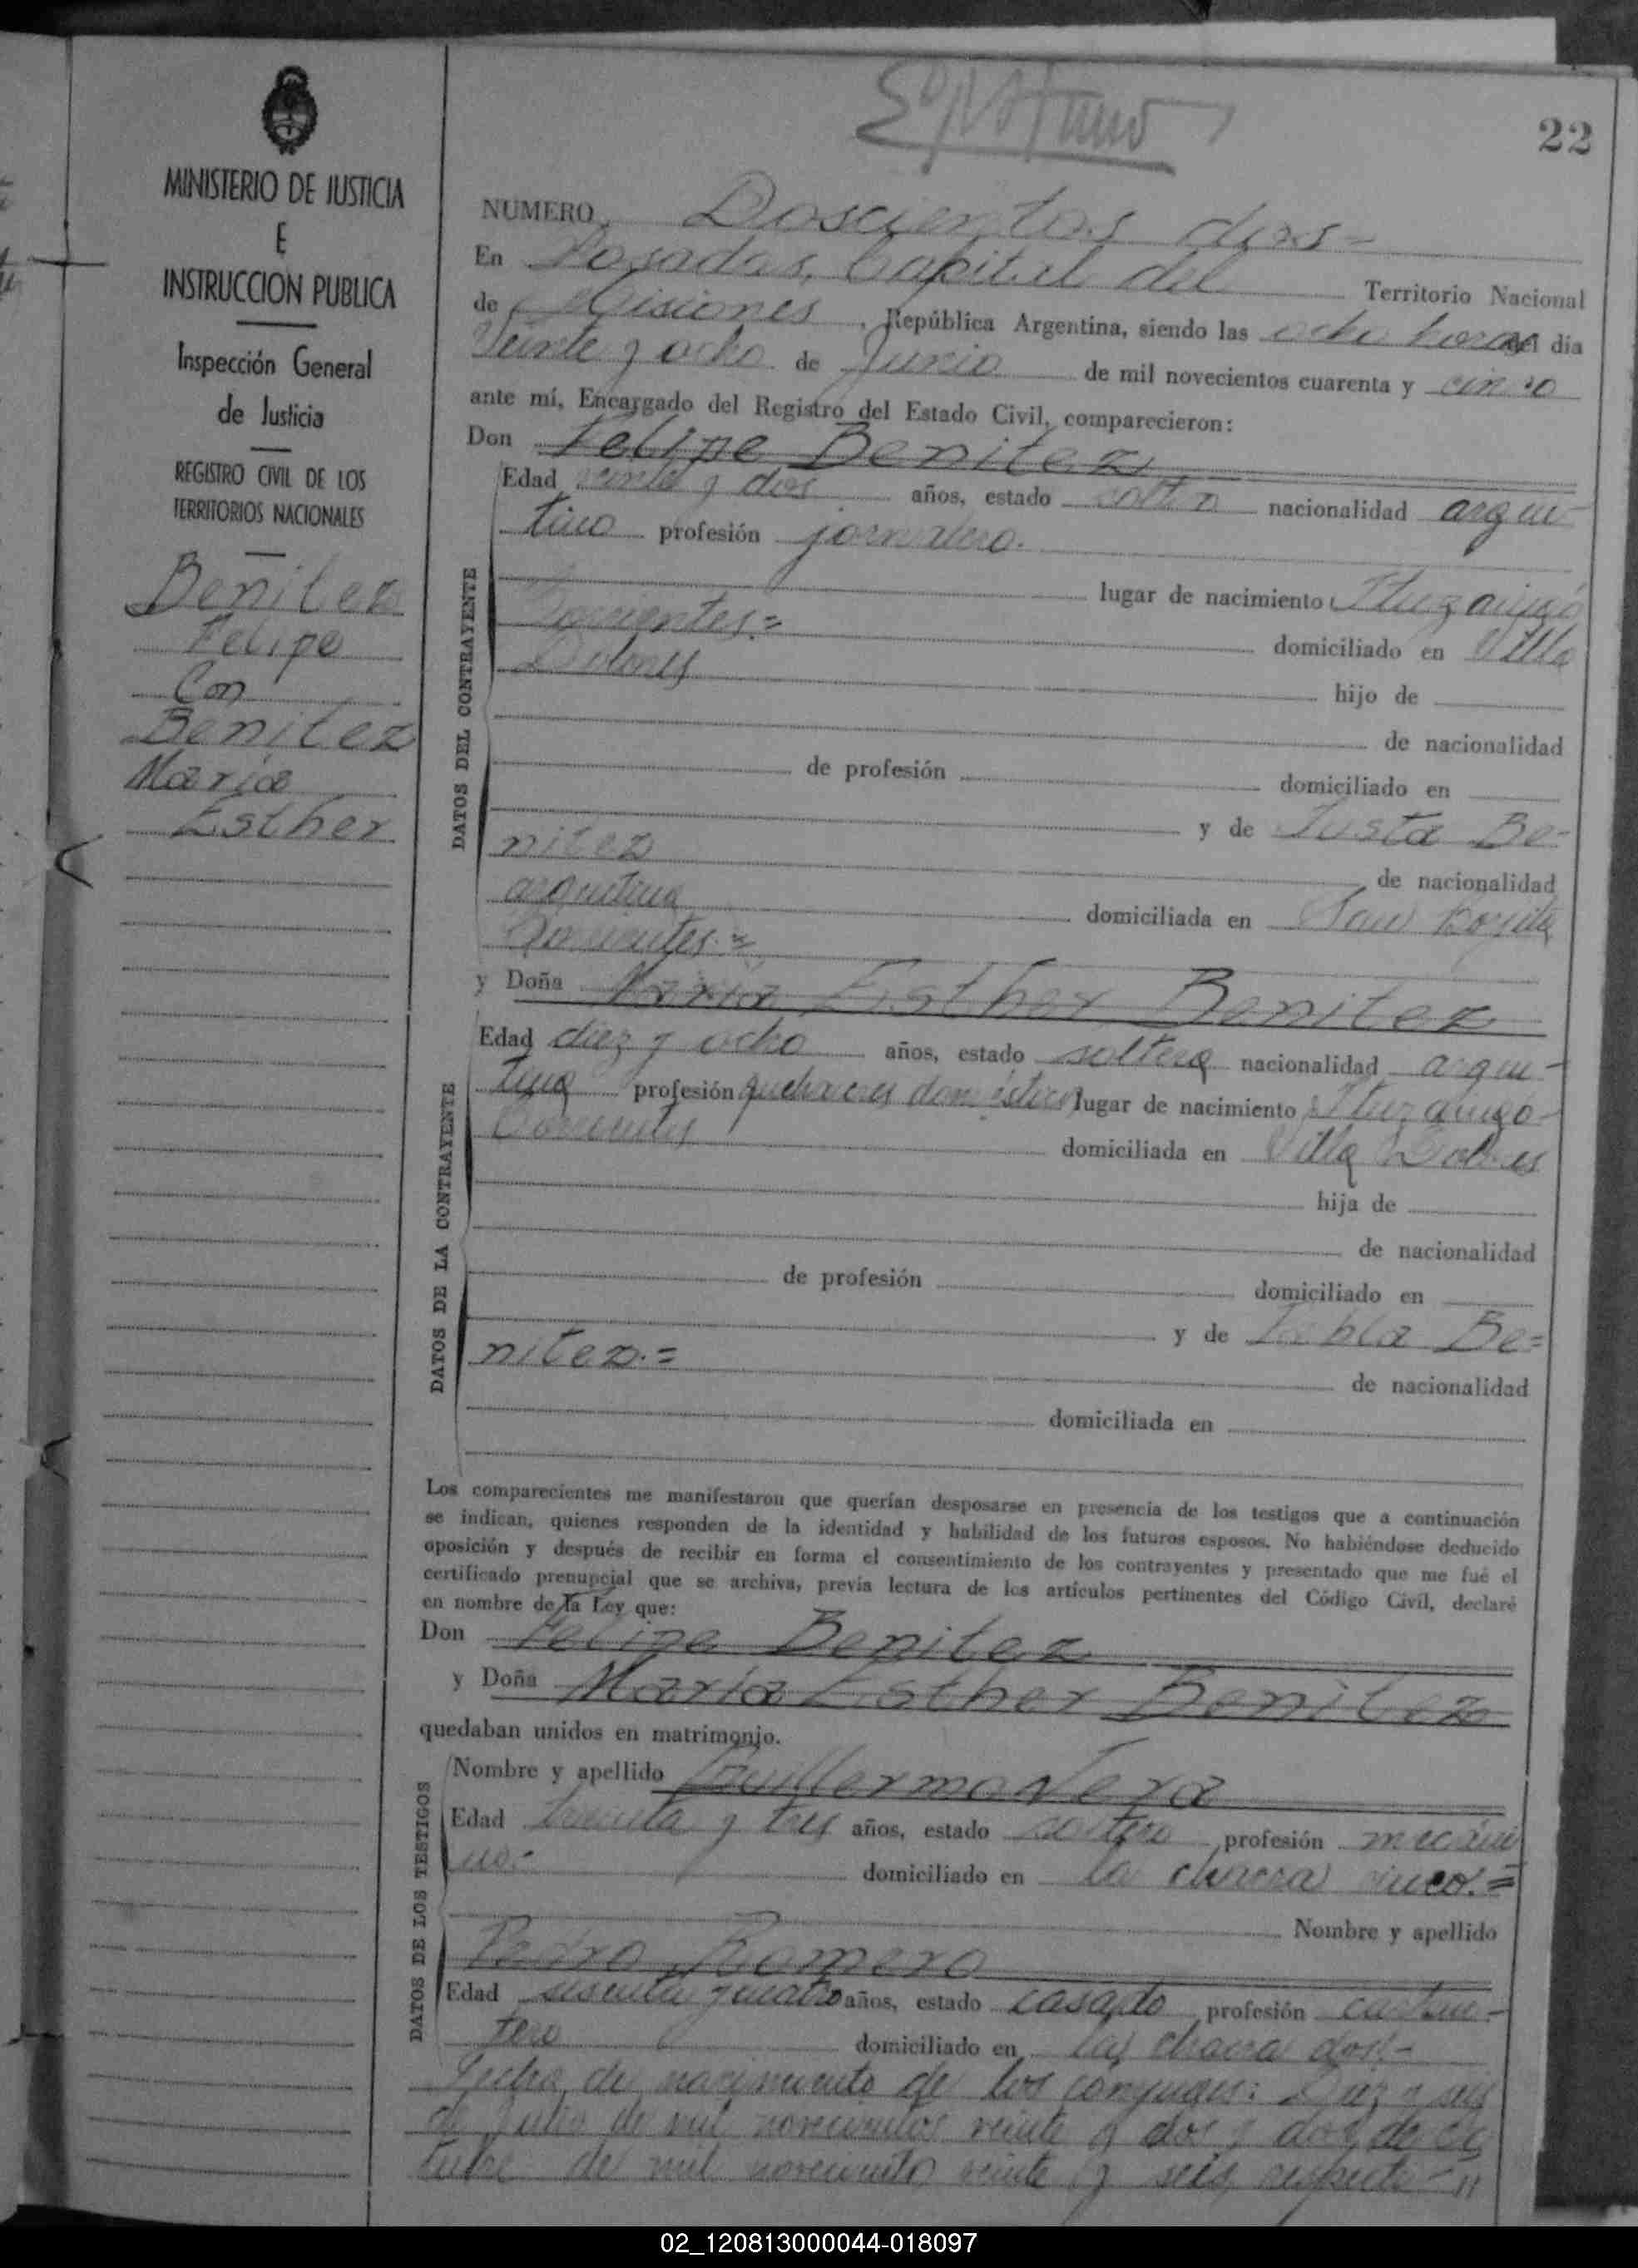 22
MINISTERIO DE JUSTICIA
E
INSTRUCCION PUBLICA
Inspección General
de Justicia
REGISTRO CIVIL DE LOS
TERRITORIOS NACIONALES
Benitez
Felipe
Con
Benitez
María
Esther
NUMERO Doscientos dos=
En Posadas, Capital del Territorio Nacional
de Misiones, República Argentina, siendo las ocho horas del día
Veinte y ocho de Junio de mil novecientos cuarenta y cinco
ante mí, Encargado del Registro del Estado Civil, comparecieron:
Don Felipe Benitez
DATOS DEL CONTRAYENTE
Edad veinte y dos años, estado nacionalidad argen-
tino profesión jornalero.
lugar de nacimiento Ituzaingó
Corrientes.=
domiciliado en Villa
Dolores
hijo de
de nacionalidad
de profesión domiciliado en
y de Justa Be-
nitez
de nacionalidad
argentina domiciliada en San
Corrientes.=
y Doña María Esther Benitez
DATOS DE LA CONTRAYENTE
Edad diez y ocho años, estado soltera nacionalidad argen-
tina profesión quehaceres domésticos lugar de nacimiento Ituzaingó-
Corrientes domiciliada en Villa Dolores
hija de
de nacionalidad
de profesión domiciliado en
y de Be=
nitez.=
de nacionalidad
domiciliada en
Los comparecientes me manifestaron que querían desposarse en presencia de los testigos que a continuación
se indican, quienes responden de la identidad y habilidad de los futuros esposos. No habiéndose deducido
oposición y después de recibir en forma el consentimiento de los contrayentes y presentado que me fué el
certificado prenupcial que se archiva, previa lectura de los artículos pertinentes del Código Civil, declaré
en nombre de la Ley que:
Don Felipe Benitez
y Doña María Esther Benitez
quedaban unidos en matrimonio.
DATOS DE LOS TESTIGOS
Nombre y apellido Guillermo Vera
Edad treinta y tres años, estado soltero profesión mecáni
co.- domiciliado en la chacra cinco.=
Nombre y apellido
Pedro Romero
Edad sesenta y cuatro años, estado casado profesión carpin-
tero domiciliado en la chacra dos.-
Fecha de nacimiento de los conyuges: Diez y seis
de Julio de mil novecientos veinte y dos y dos de Oc
tubre de mil novecientos veinte y seis, respecti-
02_120813000044-018097